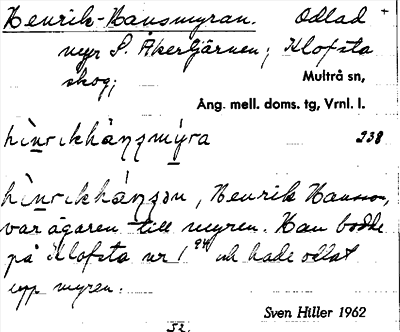 Henrik-Hansmyran. Odlad
myr S. Åkertjärnen; Klofsta
skog;
Multrå sn,
Ång. mell. doms. tg, Vrnl. l.
238
Henrik Hansson,
var ägaren till myren. Han bodde
på Klofsta nr 1 och hade odlat
upp myren.
Sven Hiller 1962